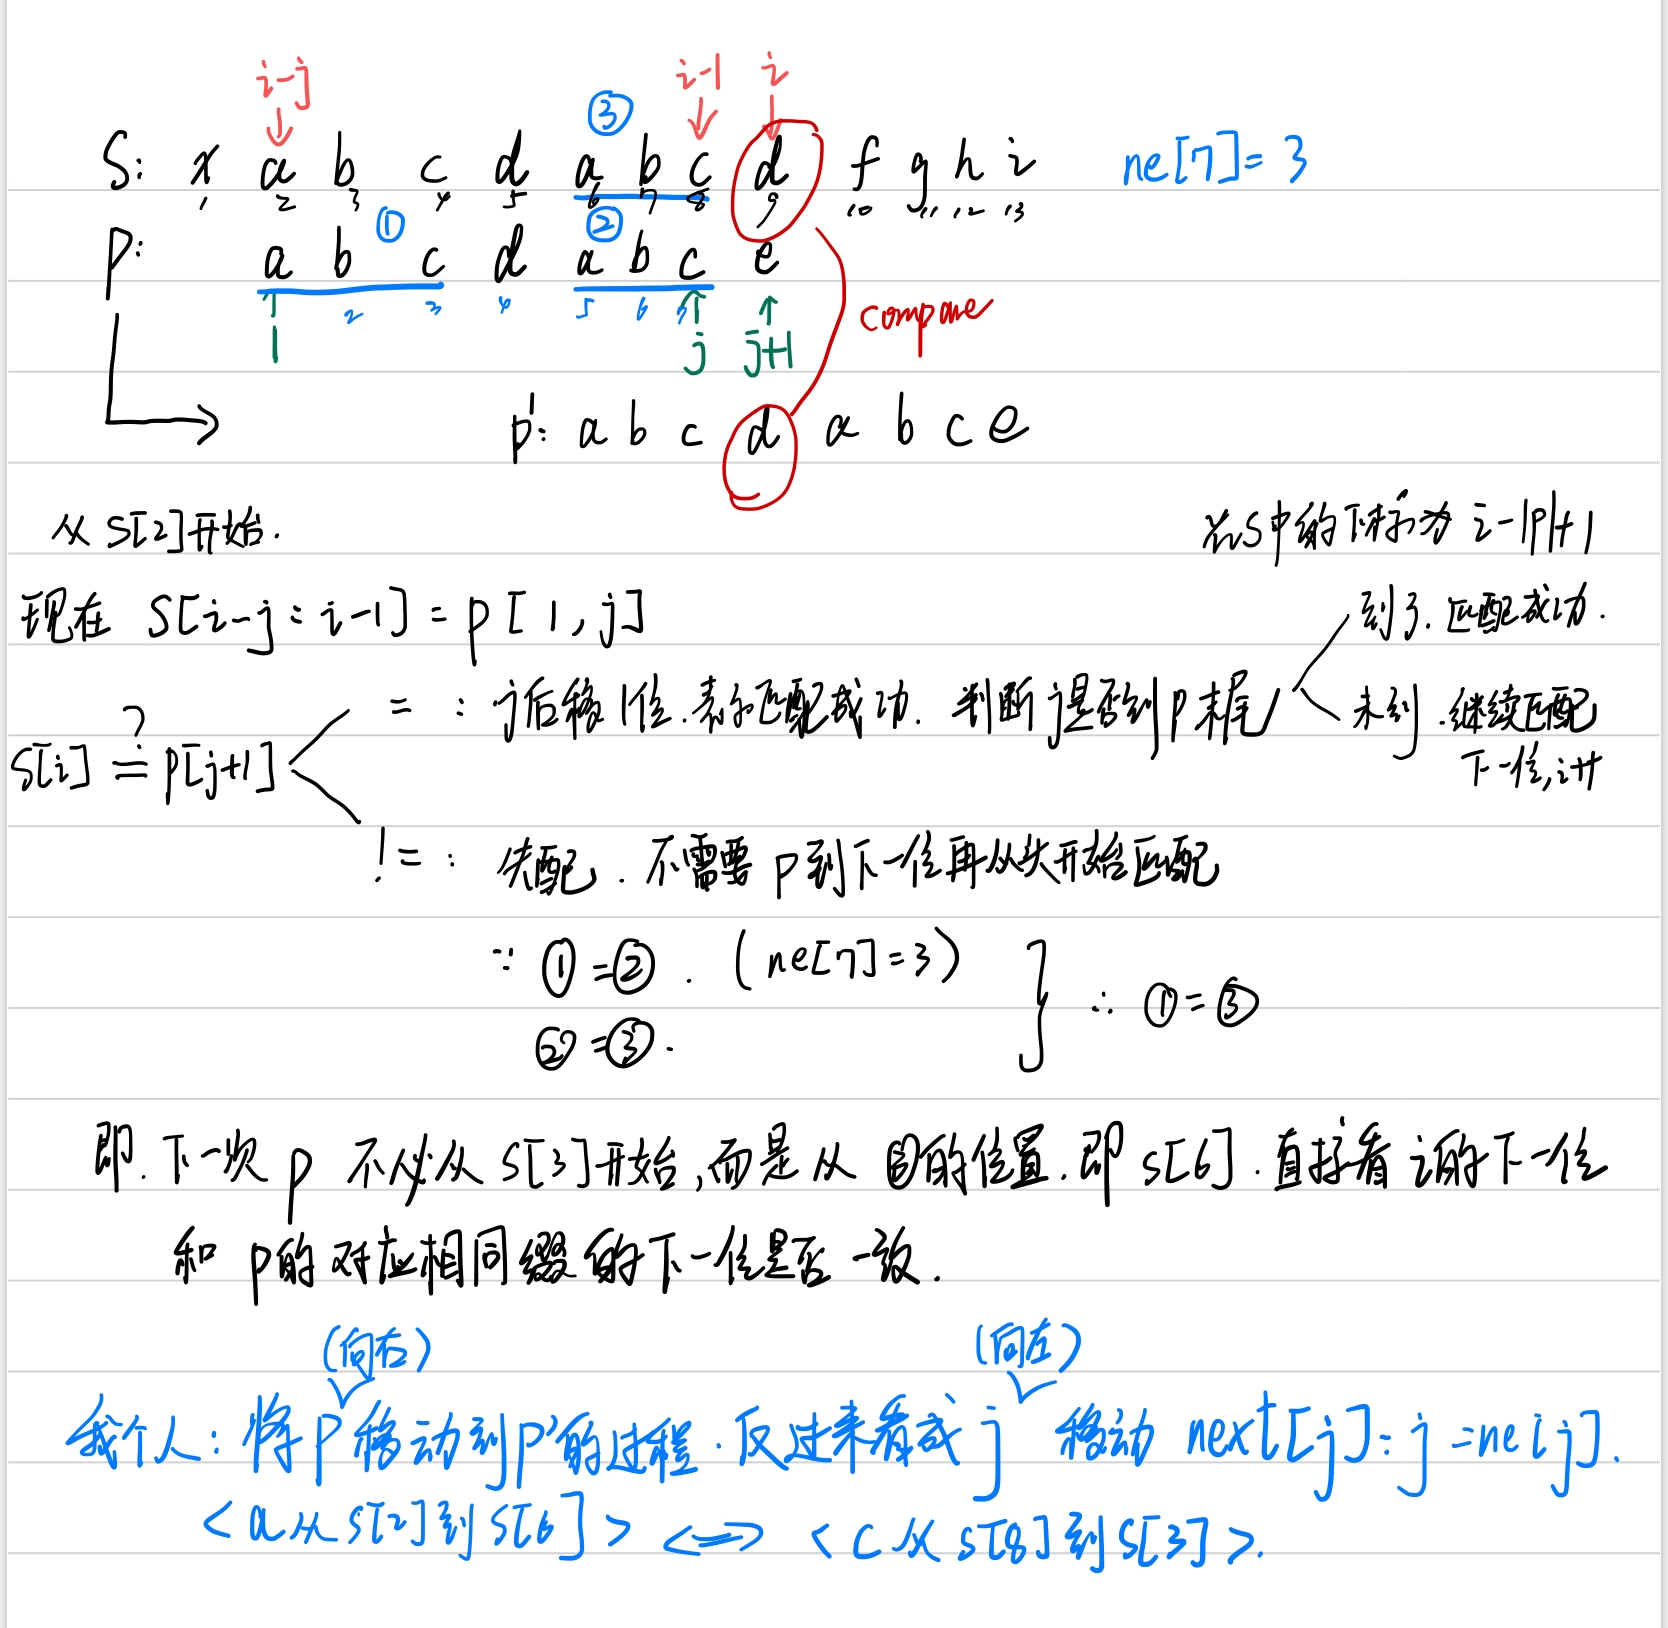 i-j i-1 i
③
S: x a b c d a b c d f g h i ne[7]=3
1 2 3 4 5 6 7 8 9 10 11 12 13
① ②
P: a b c d a b c e
1 2 3 4 5 6 7
j j+1 compare
p': a b c d a b c e
从S[2]开始. 在S中的下标为 i-|P|+1
现在 S[i-j : i-1] = p[1, j] 到了. 匹配成功.
= : j后移1位.表示匹配成功. 判断j是否到P末尾 未到.继续匹配
S[i] ?= p[j+1] 下一位,i++
!= : 失配. 不需要P到下一位再从头开始匹配
∵ ①=②. (ne[7]=3)
②=③. } ∴ ①=③
即.下一次 p 不必从 S[3]开始,而是从 ③的位置.即 S[6].直接看 i的下一位
和 p的对应相同缀的下一位是否一致.
(向右) (向左)
我个人: 将P移动到P'的过程.反过来看成 j 移动 next[j]: j=ne[j].
<a从S[2]到S[6]> <=> <c从S[8]到S[3]>.